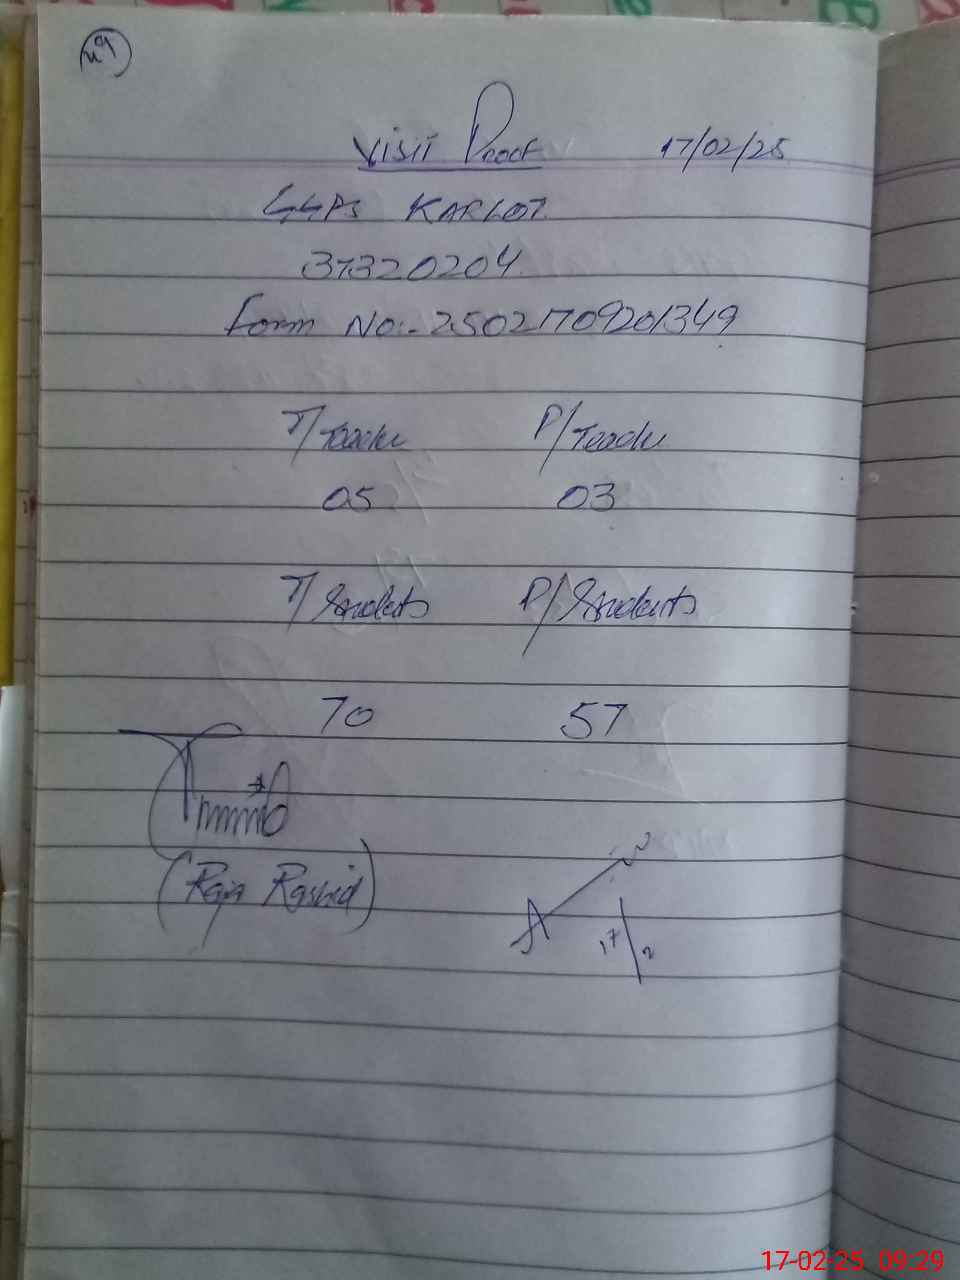 49
Visit Proof 17/02/25
GGPS KARLOT
37320204
Form No:- 25021709201349
T/Teacher P/Teacher
05 03
T/Students P/Students
70 57
(Raja Rashid)
17/2
17-02-25 09:29